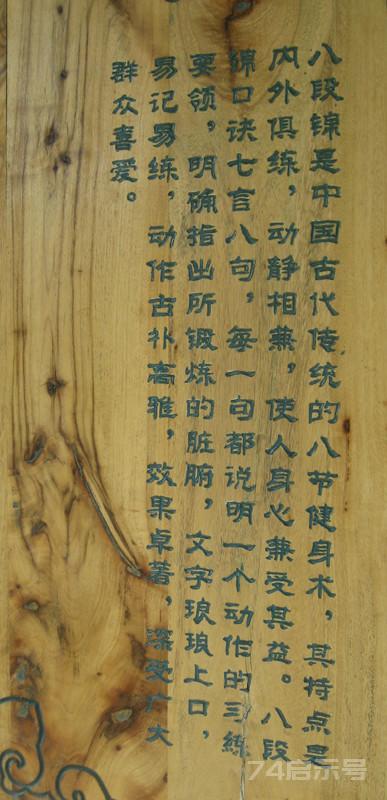 八段锦是中国古代传统的八节健身术，其特点是
内外俱练，动静相兼，使人身心兼受其益。八段
锦口诀七言八句，每一句都说明一个动作的习练
要领，明确指出所锻炼的脏腑，文字琅琅上口，
易记易练，动作古朴高雅，效果卓著，深受广大
群众喜爱。
74启示号